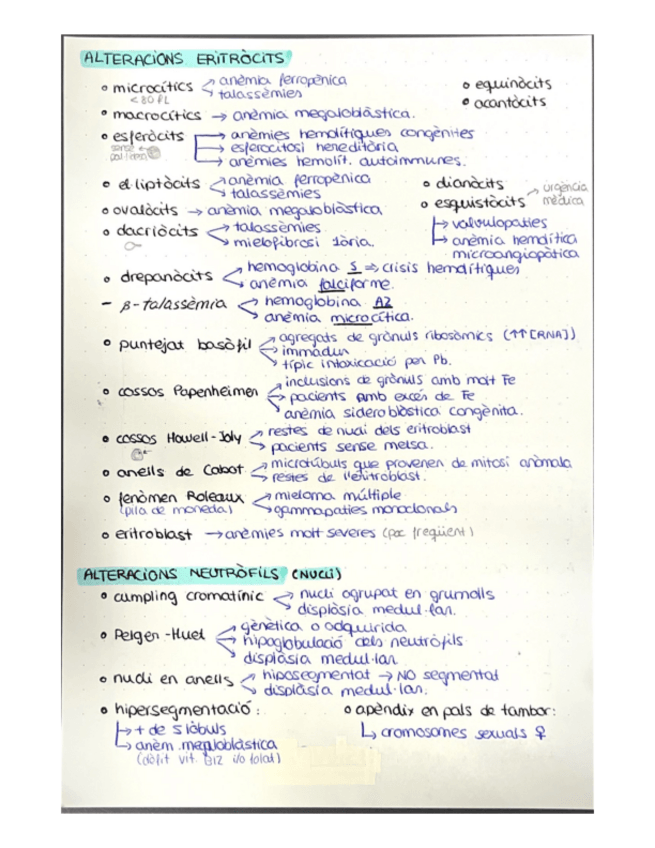 ALTERACIONS ERITRÒCITS
• microcítics
< 80 fL
anèmia ferropènica
talassèmies
• equinòcits
• acantòcits
• macrocítics → anèmia megaloblàstica.
• esferòcits
sense
pal·lidesa
anèmies hemolítiques congènites
esferocitosi hereditària
anèmies hemolít. autoimmunes.
• el·liptòcits
anèmia ferropènica
talassèmies
• dianòcits
• esquistòcits
urgència
mèdica
valvulopaties
anèmia hemolítica
microangiopàtica
• ovalòcits → anèmia megaloblàstica
• dacriòcits
talassèmies
mielofibrosi 1ària.
• drepanòcits
hemoglobina S ⇒ crisis hemolítiques
anèmia falciforme.
- β-talassèmia
hemoglobina A2
anèmia microcítica.
• puntejat basòfil
agregats de grànuls ribosòmics (↑↑[RNA])
immadur
típic intoxicació per Pb.
• cossos Papenheimer
inclusions de grànuls amb molt Fe
pacients amb excés de Fe
anèmia sideroblàstica congènita.
• cossos Howell-Joly
restes de nucli dels eritroblast
pacients sense melsa.
• anells de Cabot
microtúbuls que provenen de mitosi anòmala
restes de l'eritroblast.
• fenòmen Roleaux
(pila de moneda)
mieloma múltiple
gammapaties monoclonals
• eritroblast → anèmies molt severes (poc freqüent)
ALTERACIONS NEUTRÒFILS (NUCLI)
• cumpling cromatínic
nucli agrupat en grumolls
displàsia medul·lar.
• Pelgen-Huel
gènètica o adquirida
hipoglobulació dels neutròfils
displàsia medul·lar
• nucli en anells
hiposegmentat → NO segmentat
displàsia medul·lar.
• hipersegmentació:
+ de 5 lòbuls
anèm. megaloblàstica
(dèfit vit. B12 i/o folat)
• apèndix en pals de tambor:
cromosomes sexuals ♀